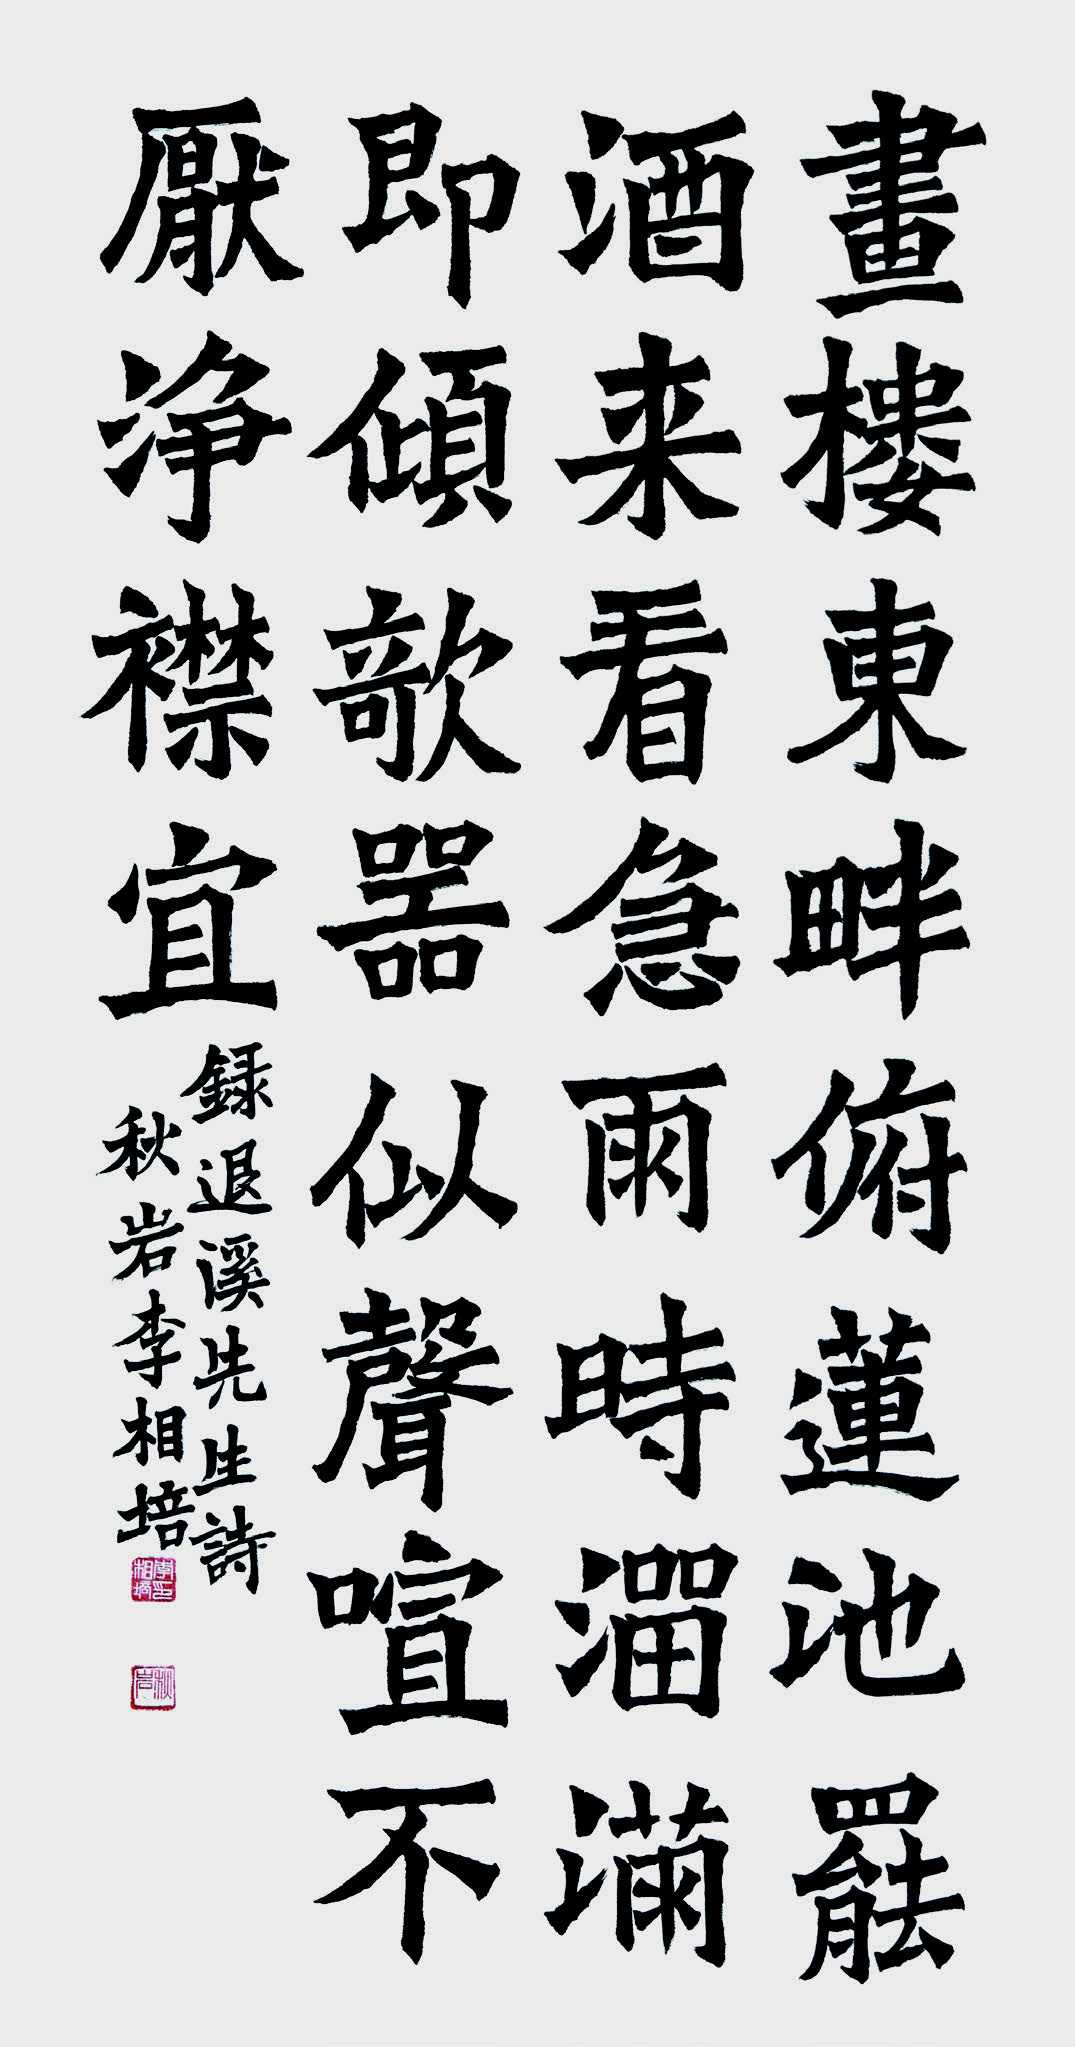 畫樓東畔俯蓮池罷
酒来看急雨時溜滿
即傾欹器似聲喧不
厭浄襟宜
録退溪先生詩
秋岩李相培
李印相培
秋岩